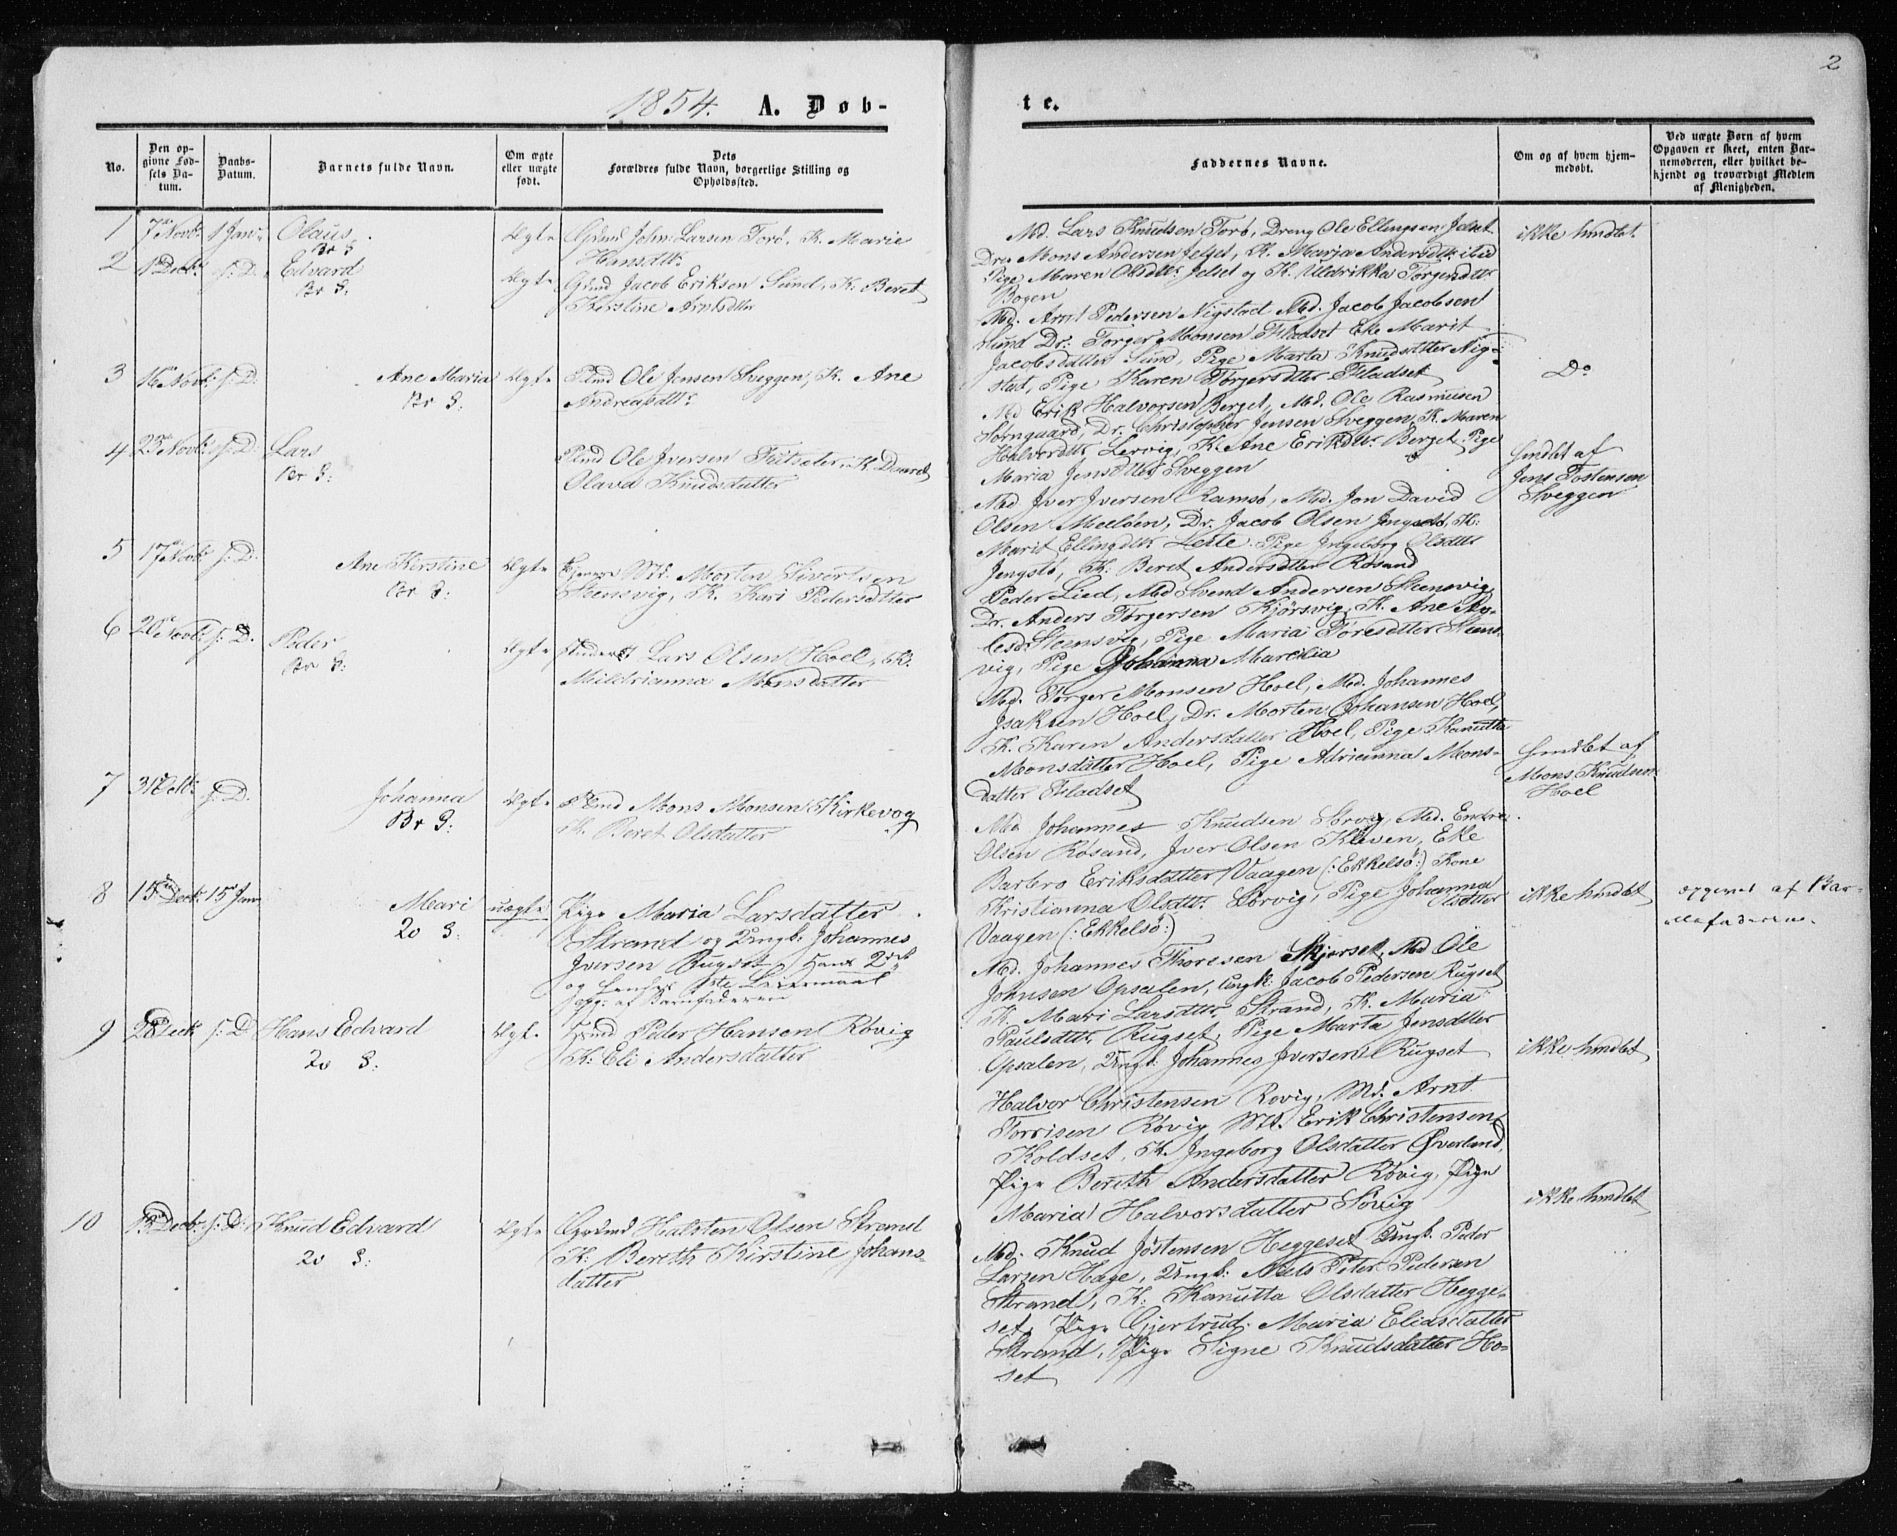 2
1854. A. Døb-
te.
No.
Den op-
givne Fød-
sels Da-
tum.
Daabs-
Datum.
Barnets fulde Navn.
Om ægte
eller uægte
født.
Dets
Forældres fulde Navn, borgerlige Stilling og
Opholdssted.
Faddernes Navne.
Om og af hvem hjem-
medøbt.
Ved uægte Børn af hvem
Opgaven er skeet, enten Bar-
nemoderen, eller hvilket be-
kjendt og troværdigt Medlem
af Menigheden.
1 7de Novb: 1 Jan. Olaus
Br S
Ægte John Larsen Torø, K. Marie
Hansdtr.
Md. Lars Knudsen Torø, Dreng Ole Ellingsen Jelset
Mons Andersen Jelset, K. Marja Andersdtr. ibid
Pige Maren Olsdtr. Jelset og K. Uldrikka Torgersdtr
Bogen
ikke hmdbt.
2 1 Decb: s: D. Edvard
Br S:
Ægte Jacob Eriksen Sund, K. Beret
Kirstine Arntsdtter
Md. Arnt Pedersen Nigstad Md. Jacob Jacobsen
Sund Dr: Torger Monsen Fladset Eke Marit
Jacobsdatter Sund, Pige Marta Knudsdtter Nig-
stad, Pige Karen Torgersdtter Fladset
3 16 Novb: s: D. Ane Maria
Br S:
Ægte Ole Jensen Sveggen, K. Ane
Andreasdtr.
Do
Md Erik Halvorsen Berget, Md. Ole Rasmusen
Dr. Christopher Jensen Sveggen, K. Maren
Halvordtr Lervig, K. Ane Eriksdtr. Berget Pige
Maria Jensdtter Sveggen
4 23 Novb: s: D. Lars
Br S:
Ole Iversen K.
Olava Knudsdatter
Hmdbt af
Jens Tostensen
Sveggen
Md Iver Iversen Ramsø, Md. Jon David
Olsen Meeløen, Dr. Jacob Olsen K:
Marit Ellingdtr Leite Pige Ingeborg Olsdtr
K. Beret Andersdtter Røsand
5 17 Novb: s: D. Ane Kirstine
Br S:
Ægte Md. Morten Sivertsen
Steensvig, K. Kari Pedersdtter
Peder Lied, Md Svend Andersen Steensvig,
Dr. Anders Torgersen Kjørsvig, K. Ane
Steensvig, Pige Maria Toresdtter Steens-
vig, Pige Johanna Marcilia
6 20 Novb: s: D. Peder
Br S:
Ægte Lars Olsen Hoel, K.
Mildrianna Monsdatter
Md. Torger Monsen Hoel, Md. Johannes
Isaksen Hoel, Dr. Morten Johansen Hoel,
K. Karen Andersdatter Hoel, Pige Kanutta
Monsdatter Hoel, Pige Adrianna Mons-
datter Fladset
Hmdbt af
Mons Knudsen
Hoel
7 31 s: D. Johanna
Br S:
Ægte Mons Monsen Kirkevog
K. Beret Olsdatter
Md Johannes Knudsen Sørvig, Md.
Olsen Røsand, Iver Olsen Kleven, Eke
Barbro Eriksdatter Vaagen (: Ekkelsø:) Kone
Kristianna Olsdtr. Sørvig, Pige Johanna
Olsdtter
Vaagen (: Ekkelsø:)
8 15 Decb: 15 Jan. Mari
20 S:
uægte Pige Maria Larsdatter
Strand og Ungk: Johannes
Iversen Rugset, Hans 2det
og hendes 1ste Leiermaal
opg: af Barnfaderen
Md. Johannes Thoresen Skjerset, Md Ole
Johnsen Opsalen, Ungk: Jacob Pedersen Rugset
K. Mari Larsdtr. Strand, K. Maria
Paulsdtr. Rugset, Pige Marta Jensdtter
Opsalen, Ungk: Johannes Iversen Rugset
ikke hmdbt opgivet af Bar-
nefaderen.
9 28 Decb s: D Hans Edvard
20 S:
Ægte Peder Hansen Røvig
K: Eli Andersdatter
ikke hmdbt
Halvor Christensen Røvig, Md. Arnt
Torrisen Røvig Md. Erik Christensen
Koldset, K. Ingeborg Olsdatter Øverland,
Pige Bereth Andersdatter Røvig, Pige
Maria Halvorsdatter Røvig
10 13 Decb: s: D: Knud Edvard
20 S:
Ægte Halsten Olsen Strand
K: Bereth Kirstine Johans-
datter
ikke hmdbt
Md. Knud Jøstensen Heggeset, Ungk: Peder
Larsen Hage, Ungk: Niels Peter Pedersen
Strand, K: Kanutta Olsdatter Hegge-
set, Pige Gjertrud Maria Eliasdatter
Strand, Pige Signe Knudsdatter Ho-
set